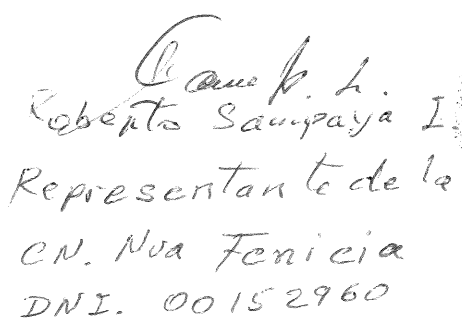 Roberto Sampaya I.
Representante de la
CN. Nva Fenicia
DNI. 00152960